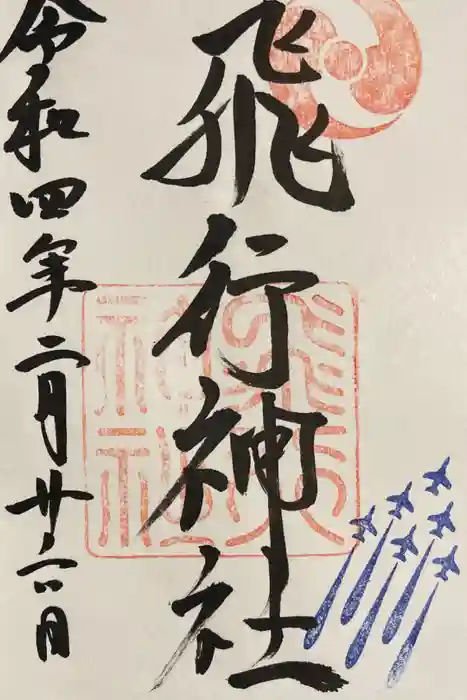 飛行神社
飛行
神社
令和四年二月廿六日